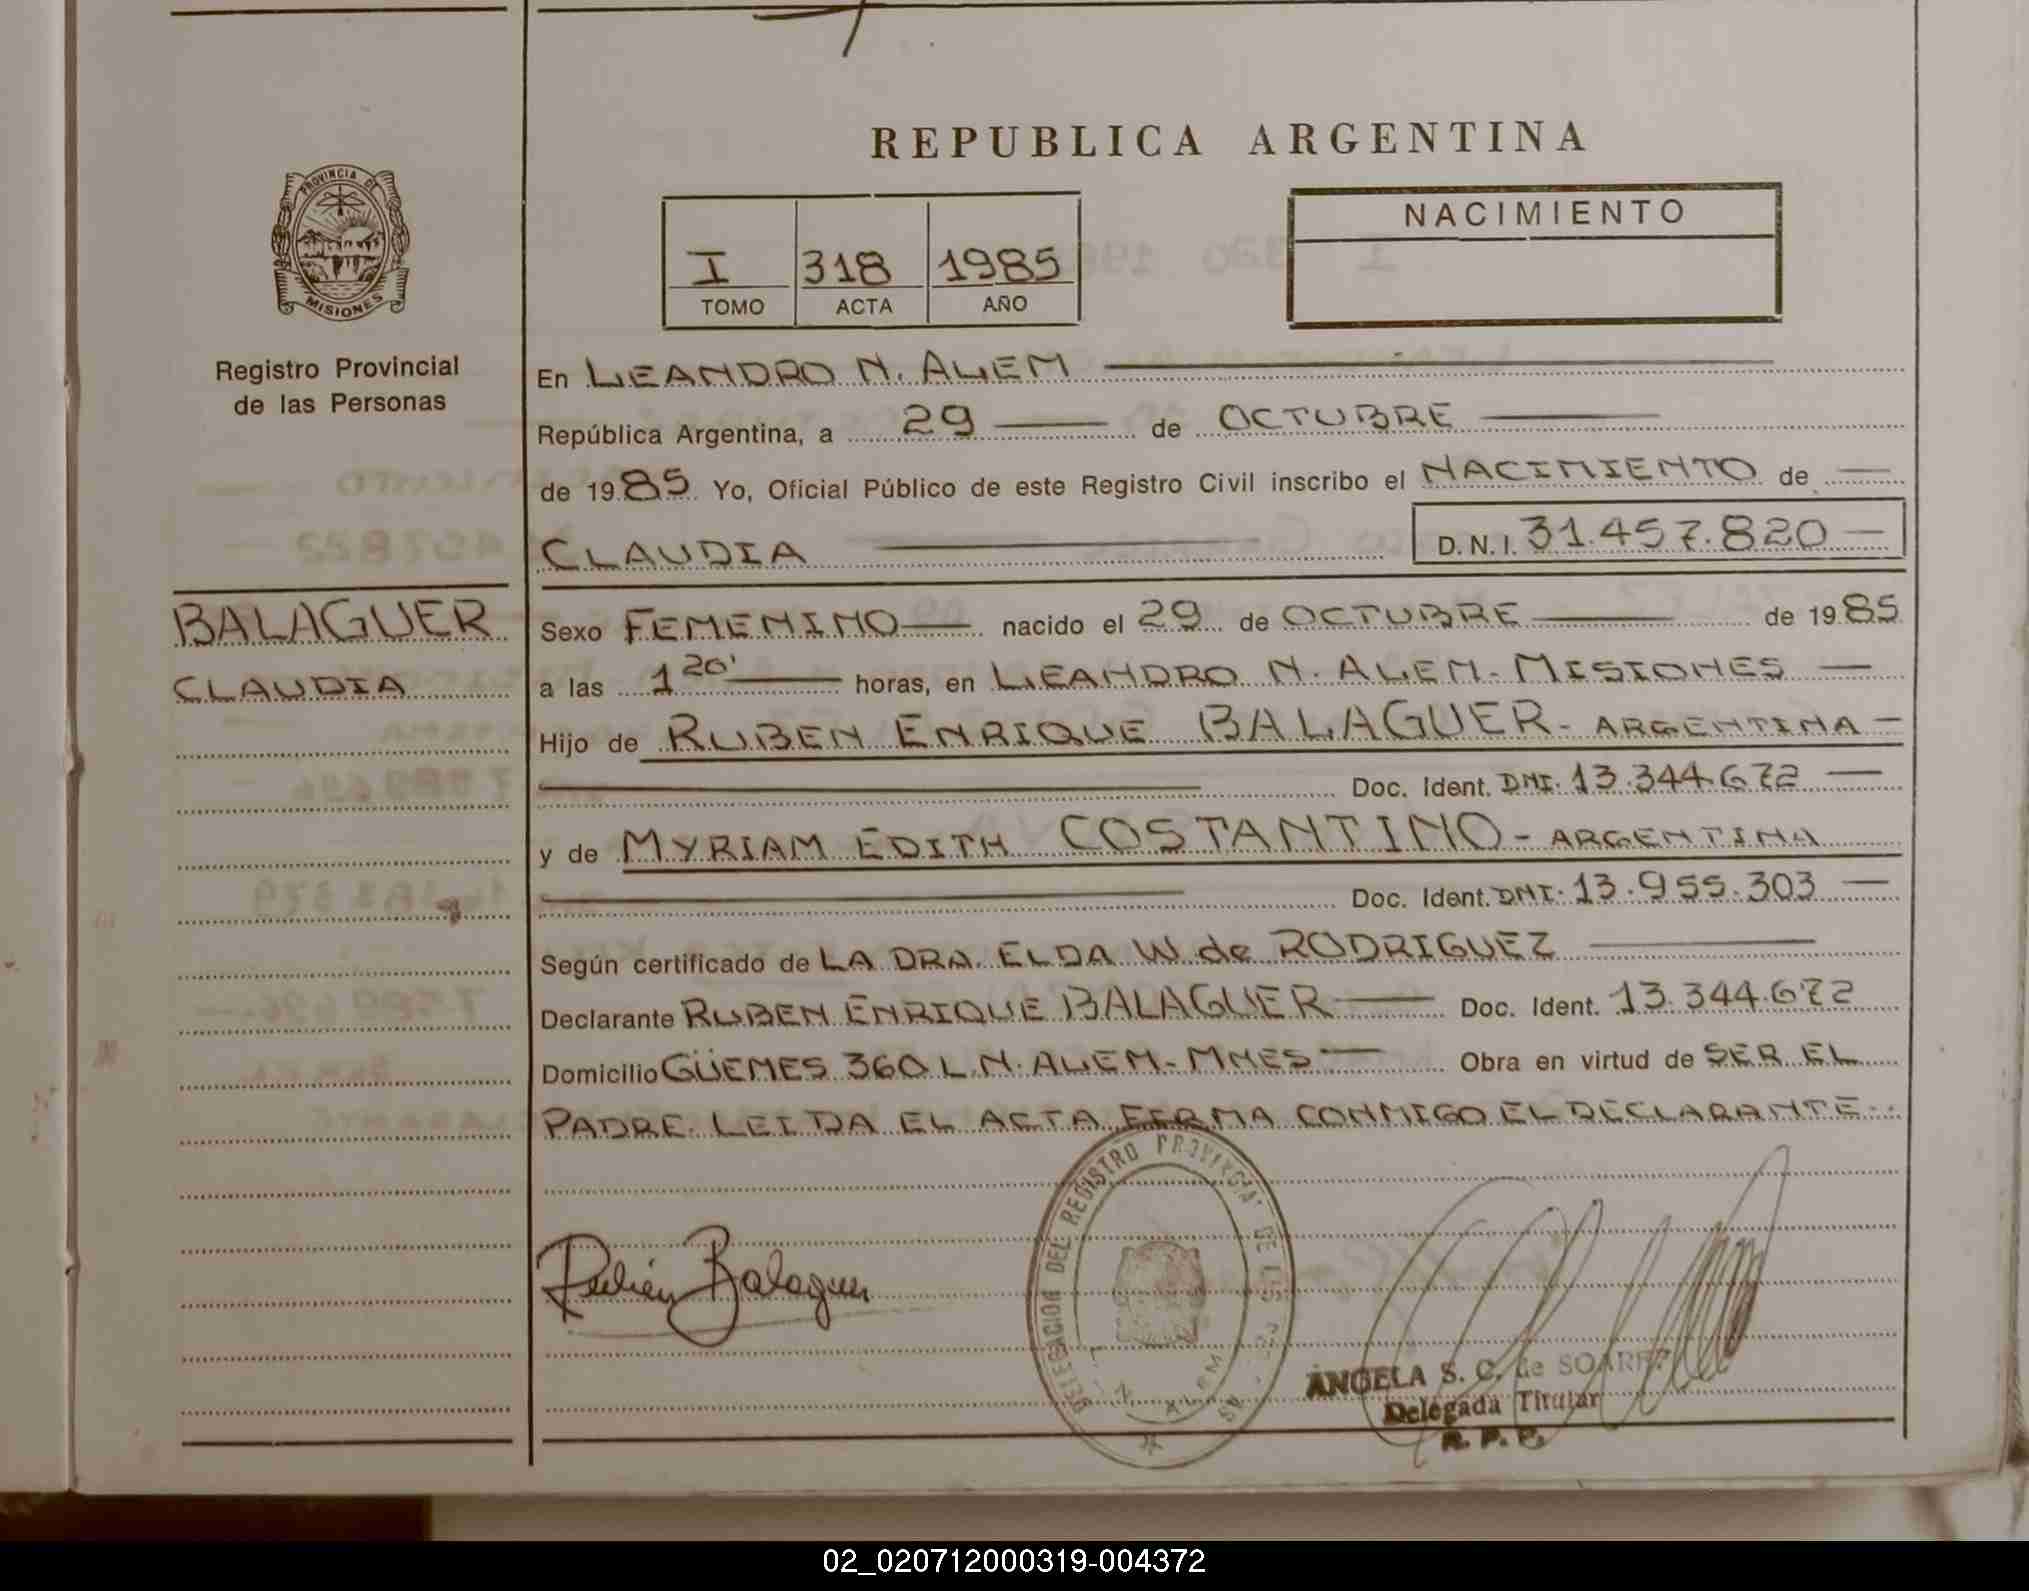 REPUBLICA ARGENTINA
PROVINCIA DE
MISIONES
Registro Provincial
de las Personas
NACIMIENTO
I 318 1985
TOMO ACTA AÑO
En LEANDRO N. ALEM
República Argentina, a 29 de OCTUBRE
de 1985 Yo, Oficial Público de este Registro Civil inscribo el NACIMIENTO de
CLAUDIA D.N.I. 31.457.820
BALAGUER
CLAUDIA
Sexo FEMENINO nacido el 29 de OCTUBRE de 1985
a las 1 20' horas, en LEANDRO N. ALEM - MISIONES
Hijo de RUBEN ENRIQUE BALAGUER - ARGENTINA
Doc. Ident. DNI. 13.344.672
y de MYRIAM EDITH COSTANTINO - ARGENTINA
Doc. Ident. DNI. 13.955.303
Según certificado de LA DRA. ELDA W de RODRIGUEZ
Declarante RUBEN ENRIQUE BALAGUER Doc. Ident. 13.344.672
Domicilio GÜEMES 360 L.N. ALEM - MNES Obra en virtud de SER EL
PADRE. LEIDA EL ACTA FIRMA CONMIGO EL DECLARANTE
DELEGACION DEL REGISTRO PROVINCIAL DE LAS
N. ALEM
Rubén Balaguer
ANGELA S. C. de SOAREZ
Delegada Titular
R. P. P.
02_020712000319-004372